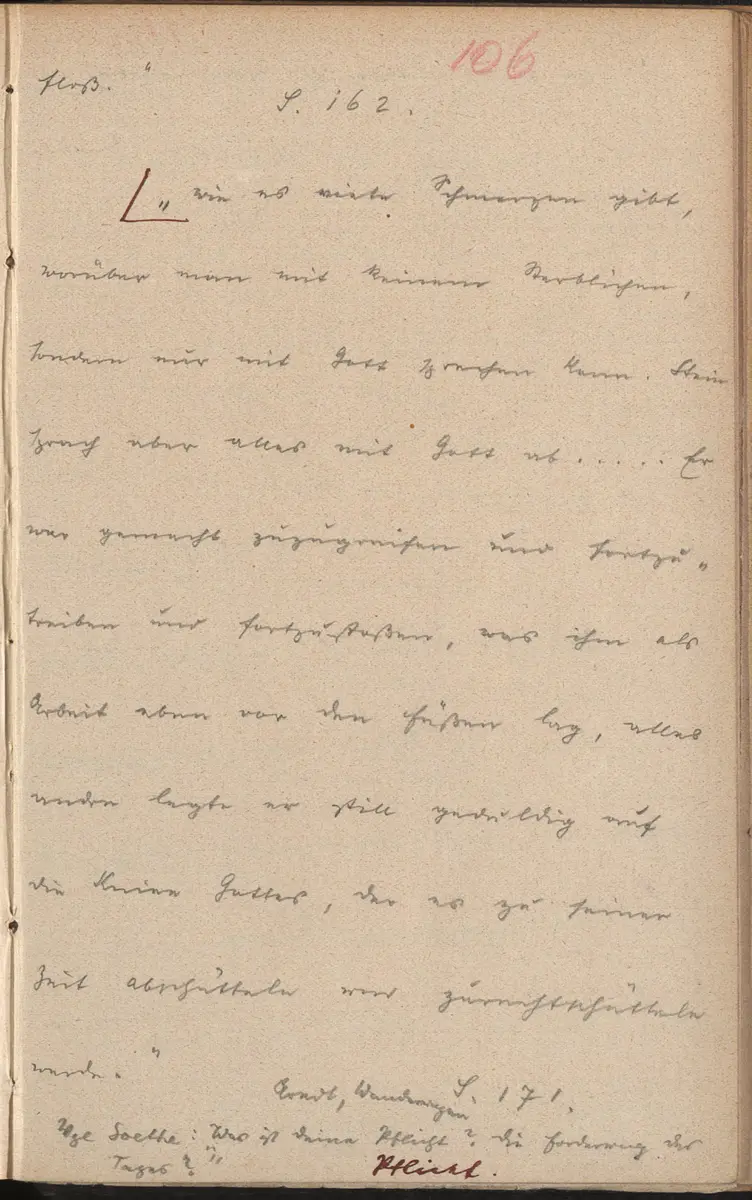 106
floß."
S. 162.
„wie es viele Schmerzen gibt,
worüber man mit keinem Sterblichen,
sondern nur mit Gott sprechen kann. Stein
sprach aber alles mit Gott ab..... Er
war gemacht zuzugreifen und fortzu„
treiben und fortzustoßen, was ihm als
Arbeit eben vor den Füßen lag, alles
andre legte er still geduldig auf
die Kniee Gottes, der es zu seiner
Zeit abschütteln und zurechtschütteln
werde."
Arndt, Wanderungen S. 171.
Vgl Goethe: Was ist deine Pflicht? die Forderung des
Tages?"
Pflicht.